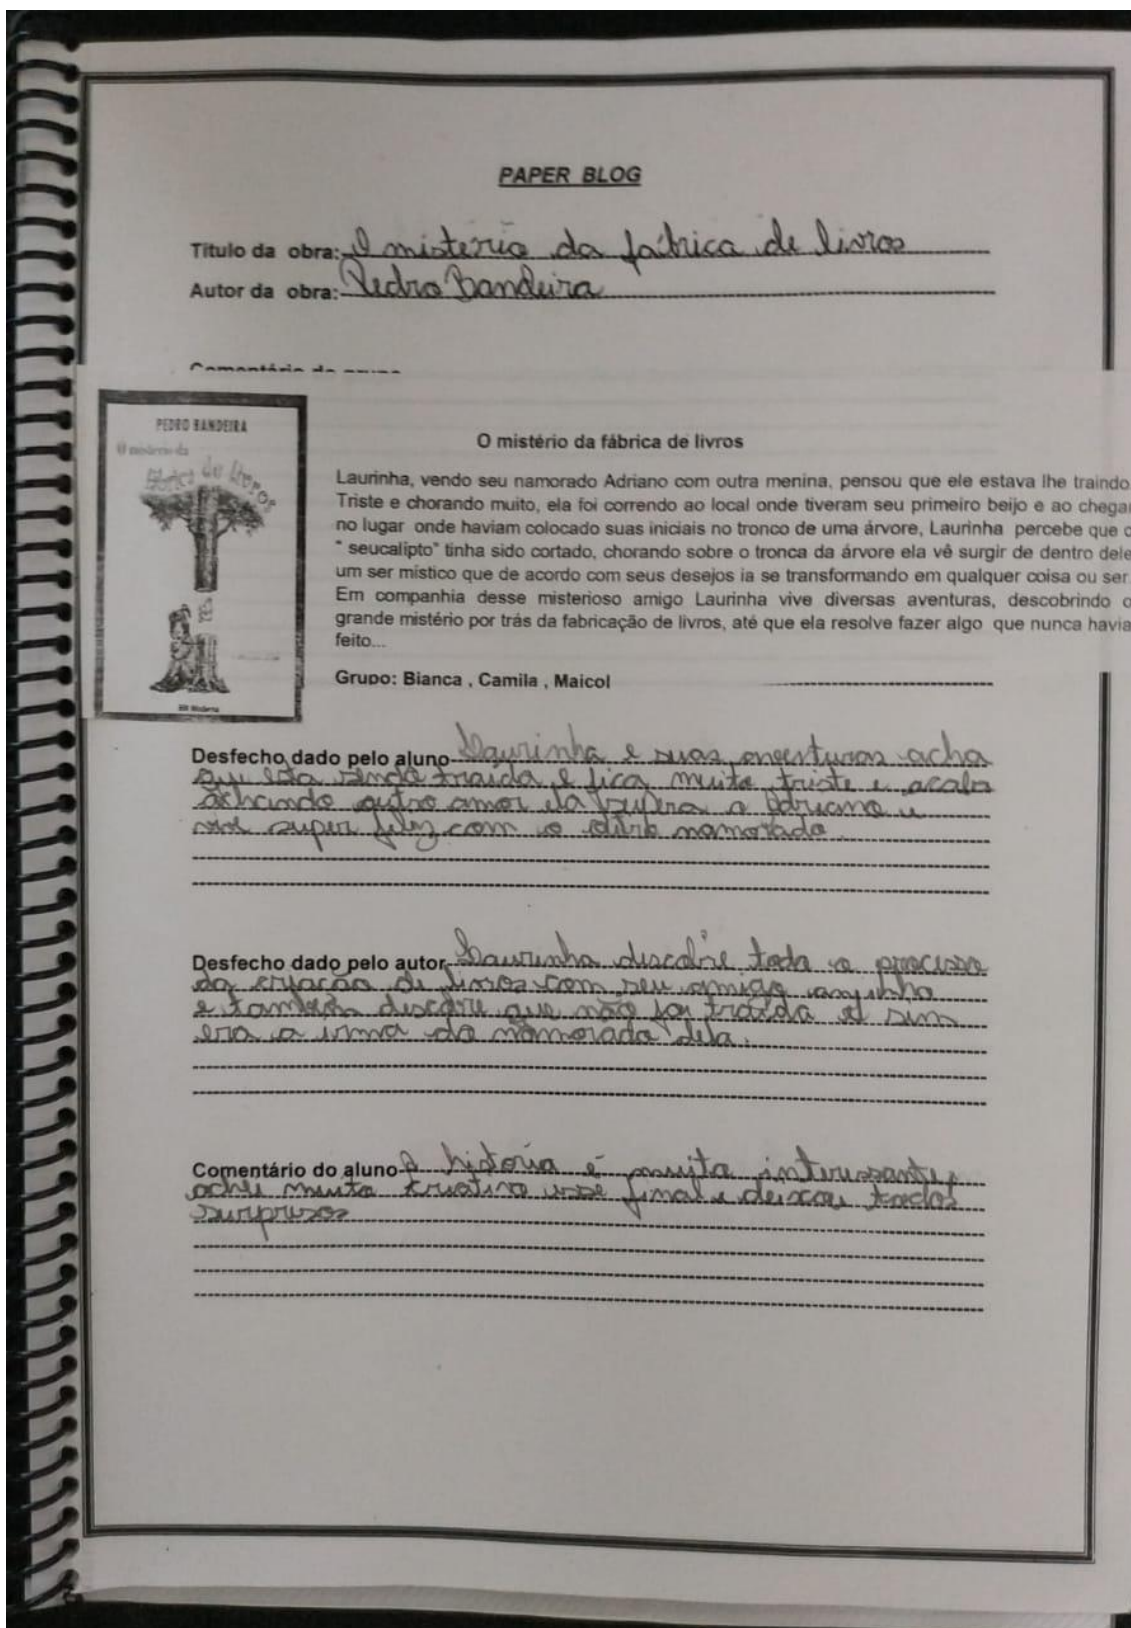 PAPER BLOG
Titulo da obra: O misterio da fábrica de livros
Autor da obra: Pedro Bandeira
Comentário do grupo
PEDRO BANDEIRA
O mistério da
fábrica de livros
O mistério da fábrica de livros
Laurinha, vendo seu namorado Adriano com outra menina, pensou que ele estava lhe traindo
Triste e chorando muito, ela foi correndo ao local onde tiveram seu primeiro beijo e ao chegar
no lugar onde haviam colocado suas iniciais no tronco de uma árvore, Laurinha percebe que o
" seucalipto" tinha sido cortado, chorando sobre o tronca da árvore ela vê surgir de dentro dele
um ser místico que de acordo com seus desejos ia se transformando em qualquer coisa ou ser.
Em companhia desse misterioso amigo Laurinha vive diversas aventuras, descobrindo o
grande mistério por trás da fabricação de livros, até que ela resolve fazer algo que nunca havia
feito...
Grupo: Bianca , Camila , Maicol
Desfecho dado pelo aluno Laurinha e suas aventuras acha
que esta sendo traida e fica muito triste e acaba
achando outro amor ela supera o Adriano e
vive super feliz com o outro namorado.
Desfecho dado pelo autor Laurinha descobre todo o processo
da criação de livros com seu amigo anjinho
e também descobre que não foi traida e sim
era a irma do namorado dela.
Comentário do aluno A historia é muito interessante,
achei muito criativo esse final e deixou todos
surpresos